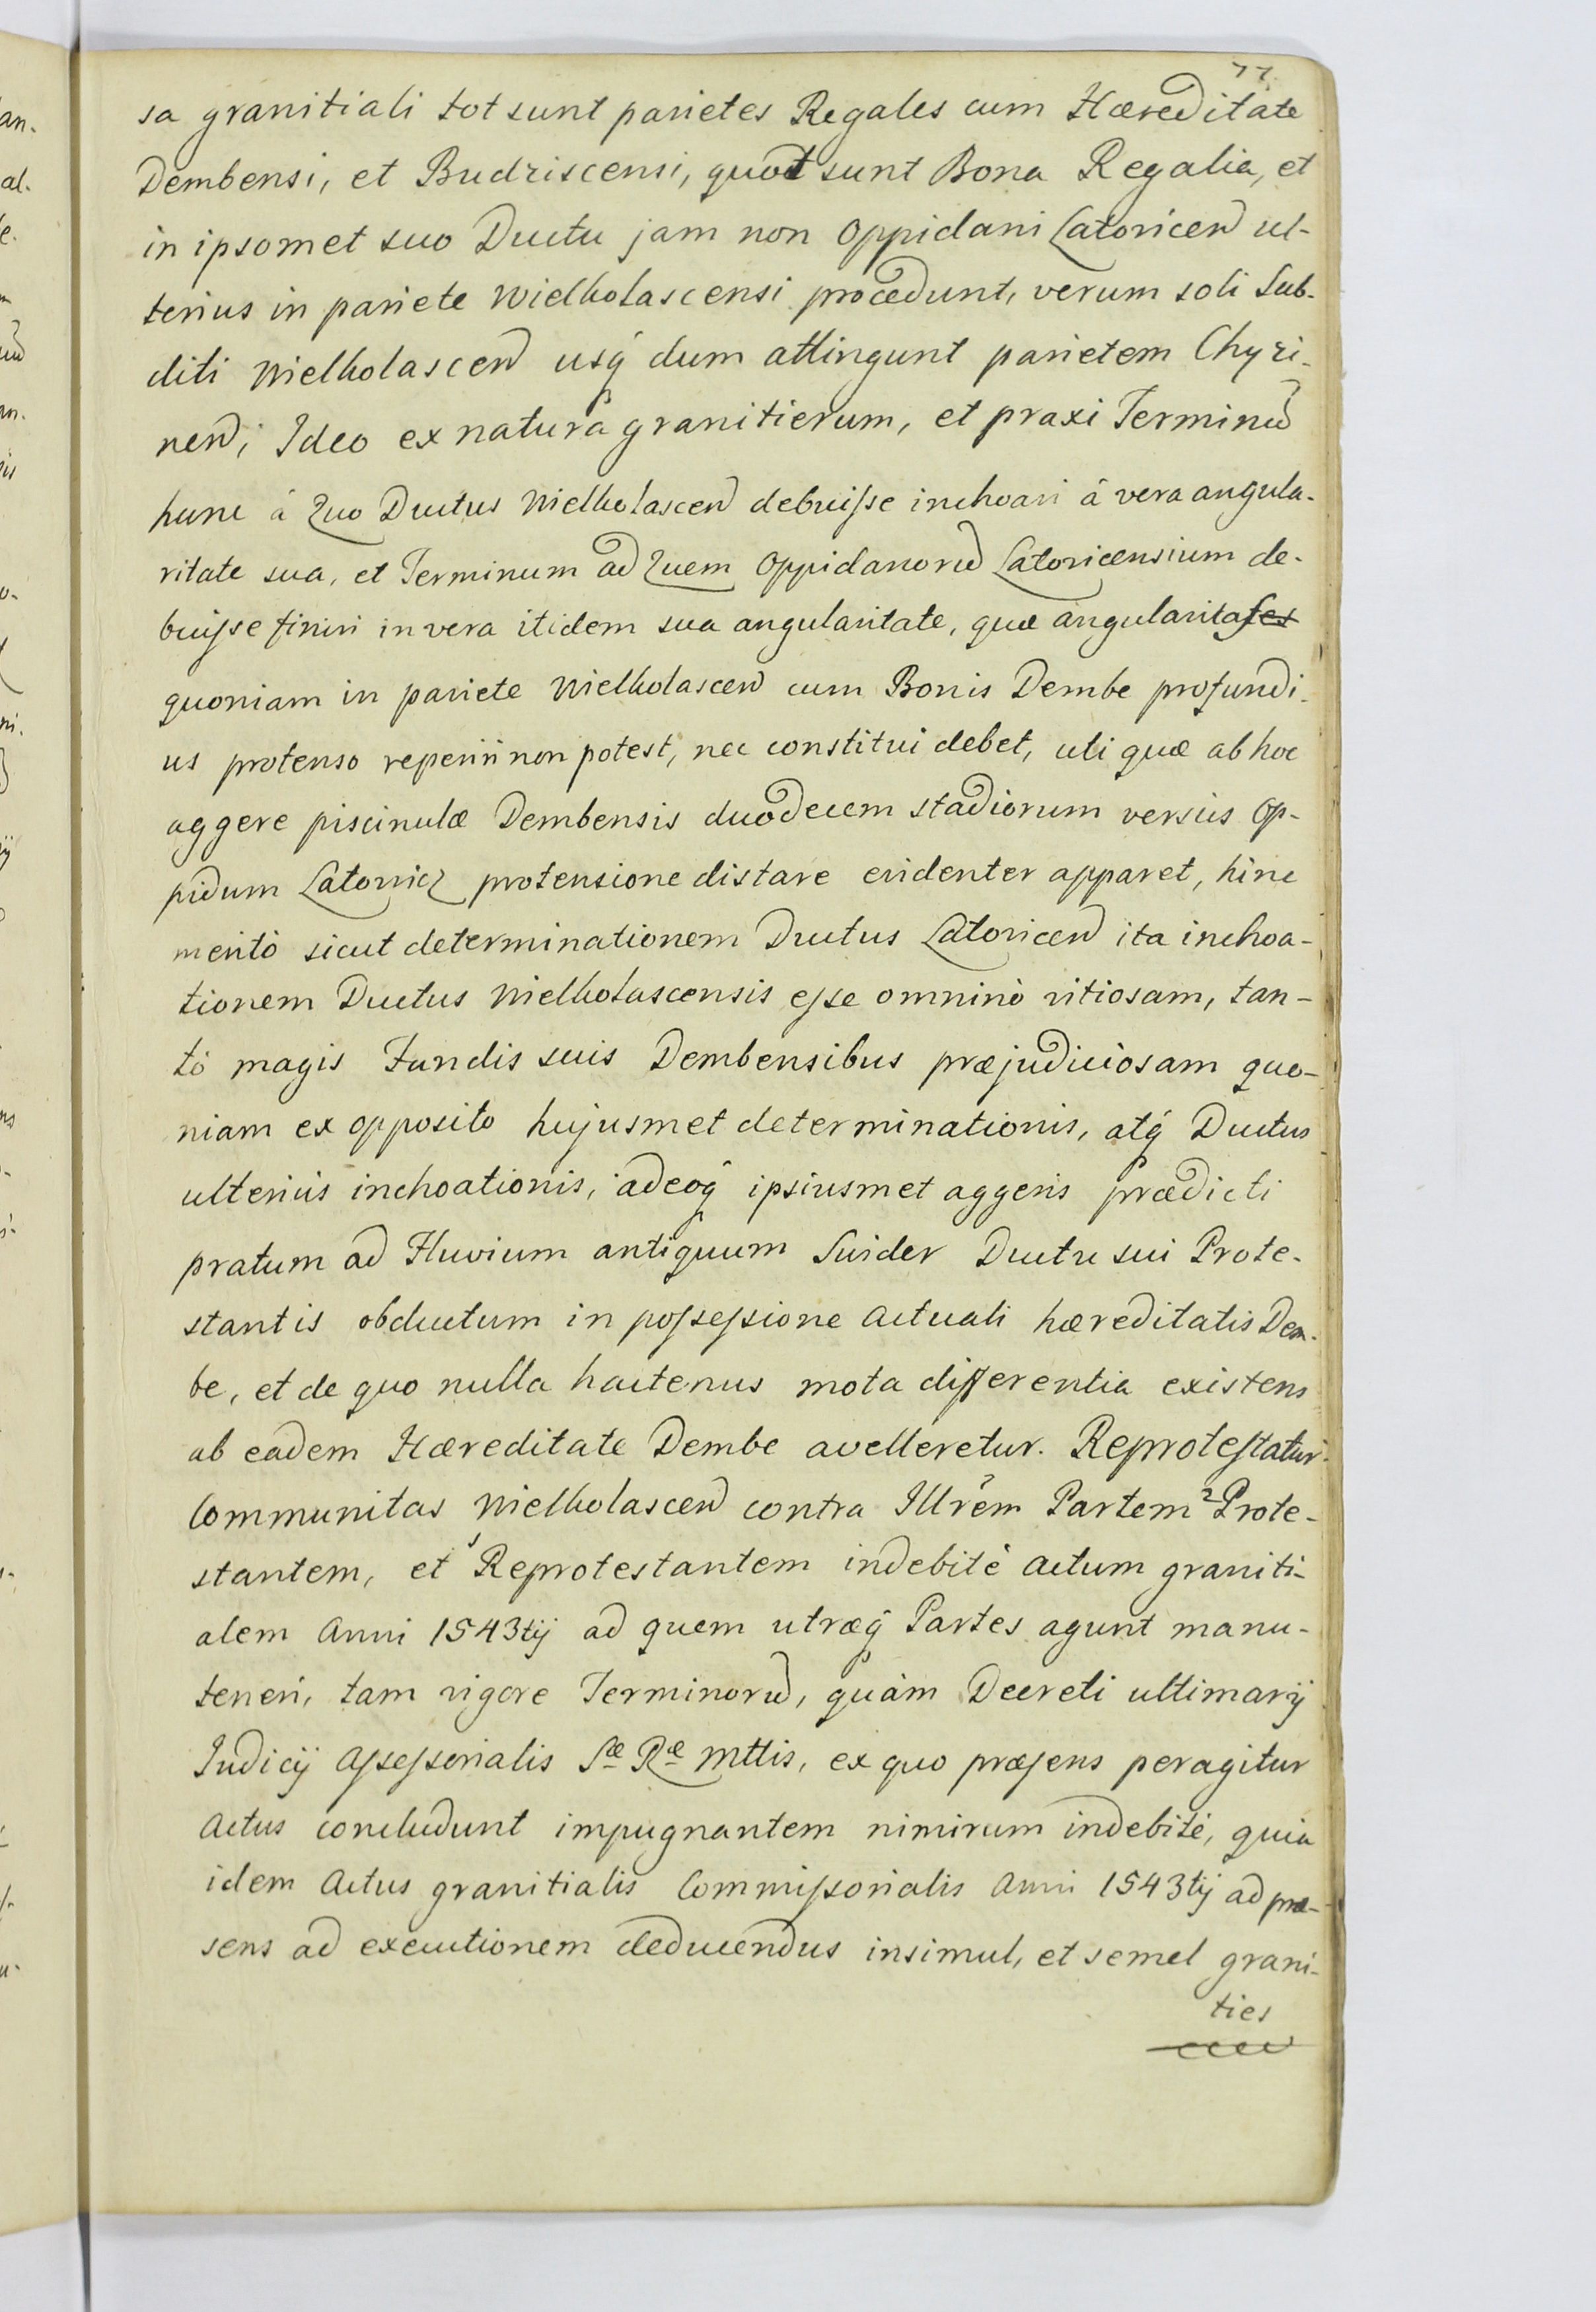 77.
sa granitiali tot sunt parietes Regales cum Hæreditate
Dembensi, et Budziscensi, quot sunt Bona Regalia, et
in ipsomet suo Ductu jam non Oppidani Latoricen̄ ul-
terius in pariete Wielholascensi procedunt, verum soli Sub-
diti Wielholascen̄ usq́ dum attingunt parietem Chyzi-
nen̄; Ideo ex natura granitierum, et praxi Terminū
hunc á Quo Ductus Wielholascen̄ debuiſse inchoari á vera angula-
ritate sua, et Terminum ad Quem Oppidanorū Latoricensium de-
buiſse finiri in vera itidem sua angularitate, quæ angularitas
quoniam in pariete Wielholascen̄ cum Bonis Dembe profundi-
us protenso reperiri non potest, nec constitui debet, uti quæ ab hoc
aggere piscinulæ Dembensis duodecem stadiorum versùs Op-
pidum Latowicz protensione distare evidenter apparet, hinc
meritò sicut determinationem Ductus Latoricen̄ ita inchoa-
tionem Ductus Wielholascensis eſse omninò vitiosam, tan-
tò magis Fundis suis Dembensibus præjudiciosam quo-
niam ex opposito hujusmet determinationis, atq́ Ductus
ulteriùs inchoationis, adeoq́ ipsiusmet aggeris prædicti
pratum ad Fluvium antiquum Swider Ductu sui Prote-
stantis obductum in poſseſsione actuali hæreditatis Dem-
be, et de quo nulla hactenus mota differentia existens
ab eadem Hæreditate Dembe avelleretur. Reproteſtatur
Communitas Wielholascen̄ contra Illrēm Partem ²Prote-
stantem, et ¹Reprotestantem indebitè actum graniti-
alem Anni 1543tij ad quem utræq́ Partes agunt manu-
teneri, tam vigore Terminorū, quàm Decreti ultimarij
Iudicij Aſseſsorialis Sæ Ræ Mttis, ex quo præſens peragitur
Actus concludunt impugnantem nimirum indebitè, quia
idem Actus granitialis Commiſsorialis Anni 1543tij ad præ-
sens ad executionem deducendus insimul, et semel grani-
ties